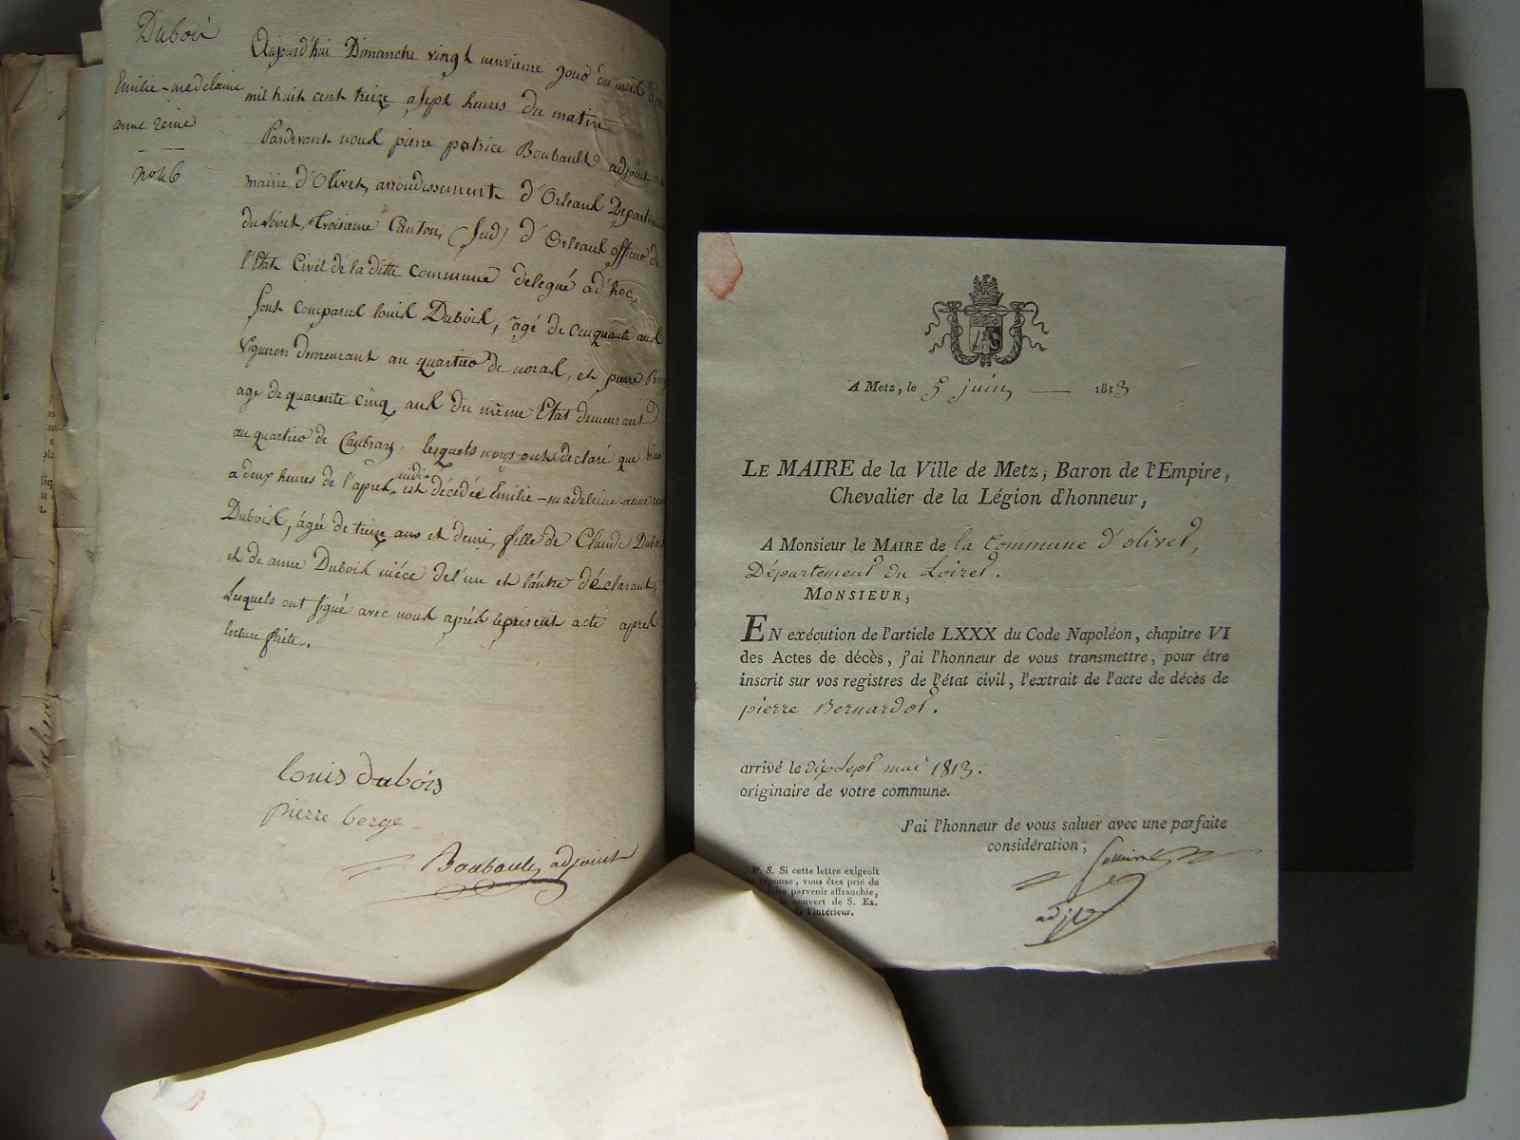 Dubois
Emilie-medelaine
anne reine
No 46
Aujourd'hui Dimanche vingt neuvieme jour du mois
mil huit cent treize a sept heures du matin
Pardevant nous pierre patrice Boubault adjoint
mairie d'Olivet, arrondissement d'Orleans Depart
du Loiret, Troisieme Canton, (Sud) d'Orleans officier de
l'Etat Civil de la ditte commune delegué ad'hoc,
sont comparus louis Dubois, âgé de cinquante ans
vigneron demeurant au quartier de noras, et pierre
age de quarante cinq ans du même Etat demeurant
au quartier de Caubray, lesquels nous ont declaré que
a deux heures de l'après midi est décédée Emilie-madeleine anne
Dubois, âgée de treize ans et demi, fille de Claude Dub
et de anne Dubois niéce de l'un et l'autre déclarants,
Lesquels ont signé avec nous après le présent acte après
lecture faite.
louis dubois
pierre berge
Boubault, adjoint
A Metz, le 5 juin 1813
LE MAIRE de la Ville de Metz, Baron de l'Empire,
Chevalier de la Légion d'honneur,
A Monsieur le MAIRE de la Commune d'olivet,
Département du Loiret.
MONSIEUR,
EN exécution de l'article LXXX du Code Napoléon, chapitre VI
des Actes de décès, j'ai l'honneur de vous transmettre, pour être
inscrit sur vos registres de l'état civil, l'extrait de l'acte de décès de
pierre Bernardot.
arrivé le dix sept mai 1813.
originaire de votre commune.
J'ai l'honneur de vous saluer avec une parfaite
considération;
adjt
P. S. Si cette lettre exigeoit
réponse, vous êtes prié de
parvenir affranchie,
couvert de S. Ex.
l'intérieur.